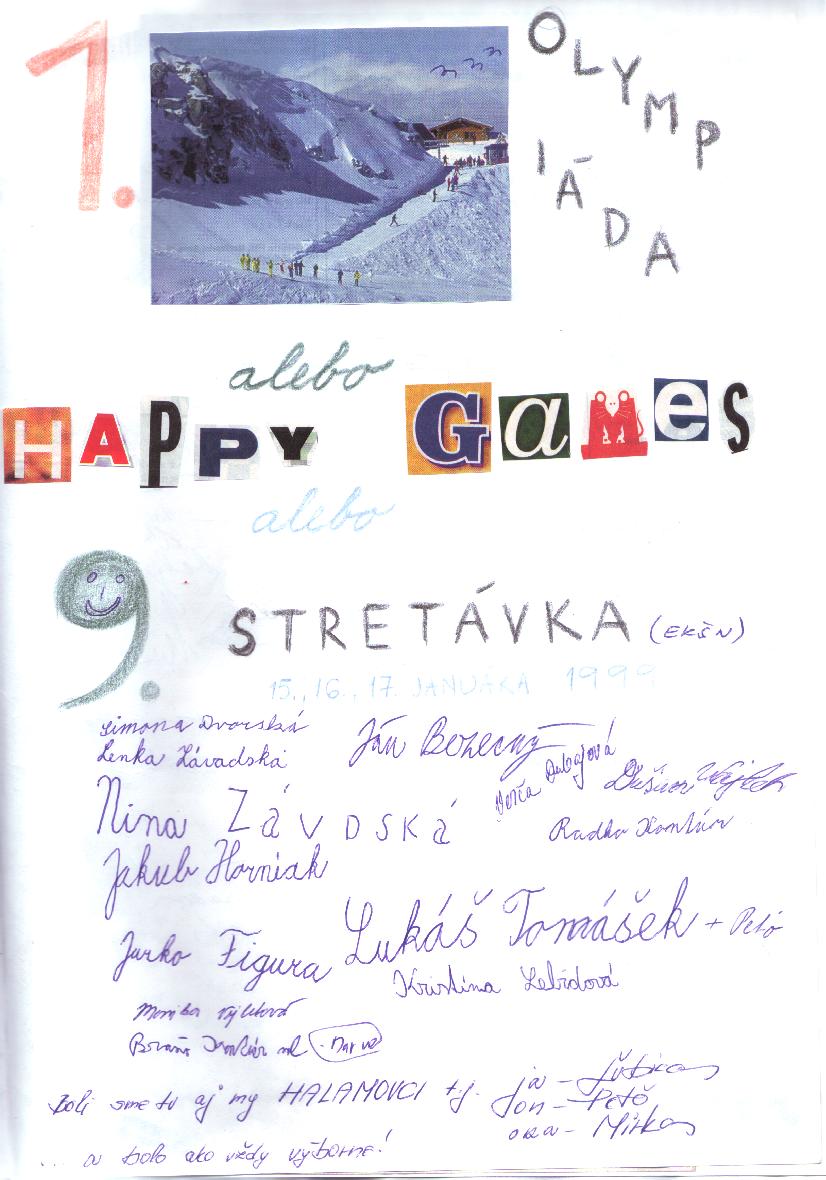 1.
OLYMP
IÁDA
alebo
HAPPY GAMeS
alebo
9. STRETÁVKA (EKŠN)
15., 16., 17. JANUÁRA 1999
Simona Dvorská
Lenka Závadská
Ján Bozecný
Nina ZáVDSKá
Radko
Jakub Horniak
Jurko Figura
Lukáš Tomášek + Peťo
Kristína Lebidová
Monika
Boli sme tu aj my HALAMOVCI t.j. ja – Ľubica
on – Peťo
ona – Mirka
... a bolo ako vždy výborne!